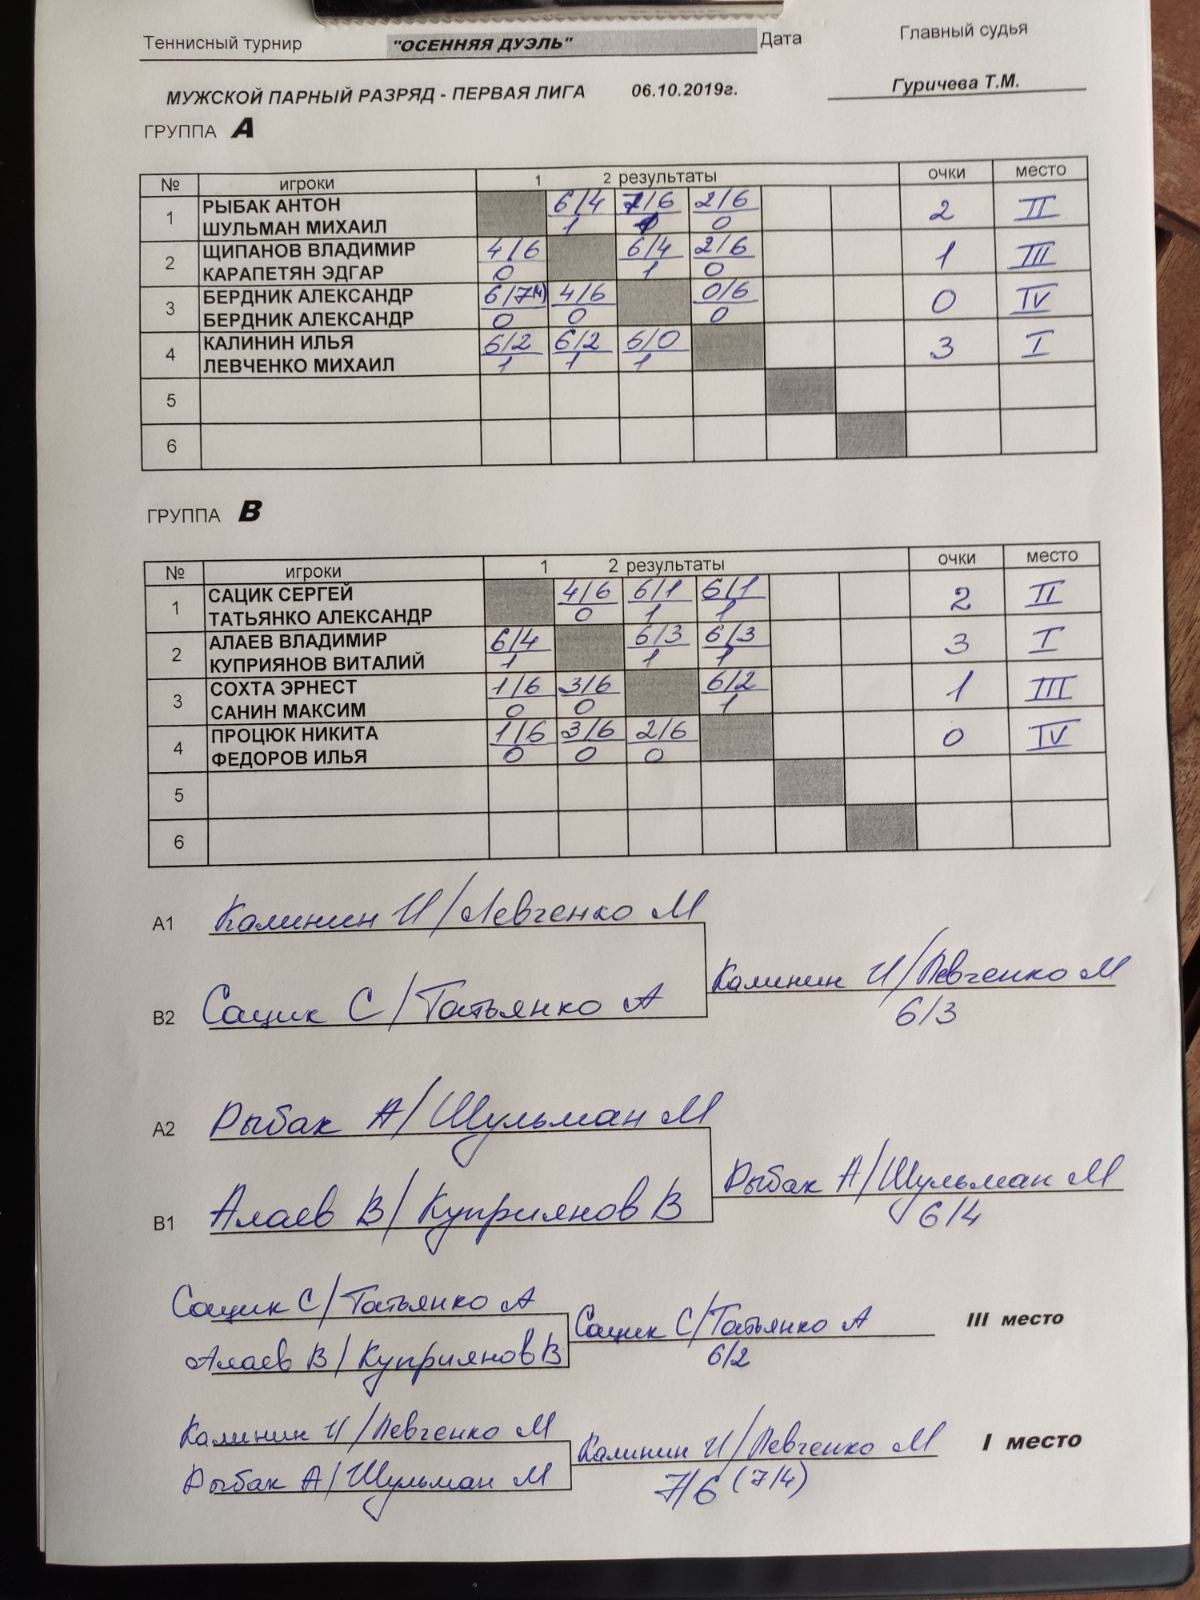 Теннисный турнир "ОСЕННЯЯ ДУЭЛЬ" Дата Главный судья
МУЖСКОЙ ПАРНЫЙ РАЗРЯД - ПЕРВАЯ ЛИГА 06.10.2019г. Гуричева Т.М.
ГРУППА А
№ игроки 1 2 результаты очки место
1 РЫБАК АНТОН 6/4 7/6 2/6 2 II
ШУЛЬМАН МИХАИЛ 1 1 0
2 ЩИПАНОВ ВЛАДИМИР 4/6 6/4 2/6 1 III
КАРАПЕТЯН ЭДГАР 0 1 0
3 БЕРДНИК АЛЕКСАНДР 6/7(4) 4/6 0/6 0 IV
БЕРДНИК АЛЕКСАНДР 0 0 0
4 КАЛИНИН ИЛЬЯ 6/2 6/2 6/0 3 I
ЛЕВЧЕНКО МИХАИЛ 1 1 1
5
6
ГРУППА В
№ игроки 1 2 результаты очки место
1 САЦИК СЕРГЕЙ 4/6 6/1 6/1 2 II
ТАТЬЯНКО АЛЕКСАНДР 0 1 1
2 АЛАЕВ ВЛАДИМИР 6/4 6/3 6/3 3 I
КУПРИЯНОВ ВИТАЛИЙ 1 1 1
3 СОХТА ЭРНЕСТ 1/6 3/6 6/2 1 III
САНИН МАКСИМ 0 0 1
4 ПРОЦЮК НИКИТА 1/6 3/6 2/6 0 IV
ФЕДОРОВ ИЛЬЯ 0 0 0
5
6
А1 Калинин И/Левченко М
Калинин И/Левченко М
В2 Сацик С/Татьянко А
6/3
А2 Рыбак А/Шульман М
Рыбак А/Шульман М
В1 Алаев В/Куприянов В
6/4
Сацик С/Татьянко А
Сацик С/Татьянко А III место
Алаев В/Куприянов В
6/2
Калинин И/Левченко М
Калинин И/Левченко М I место
Рыбак А/Шульман М
7/6 (7/4)